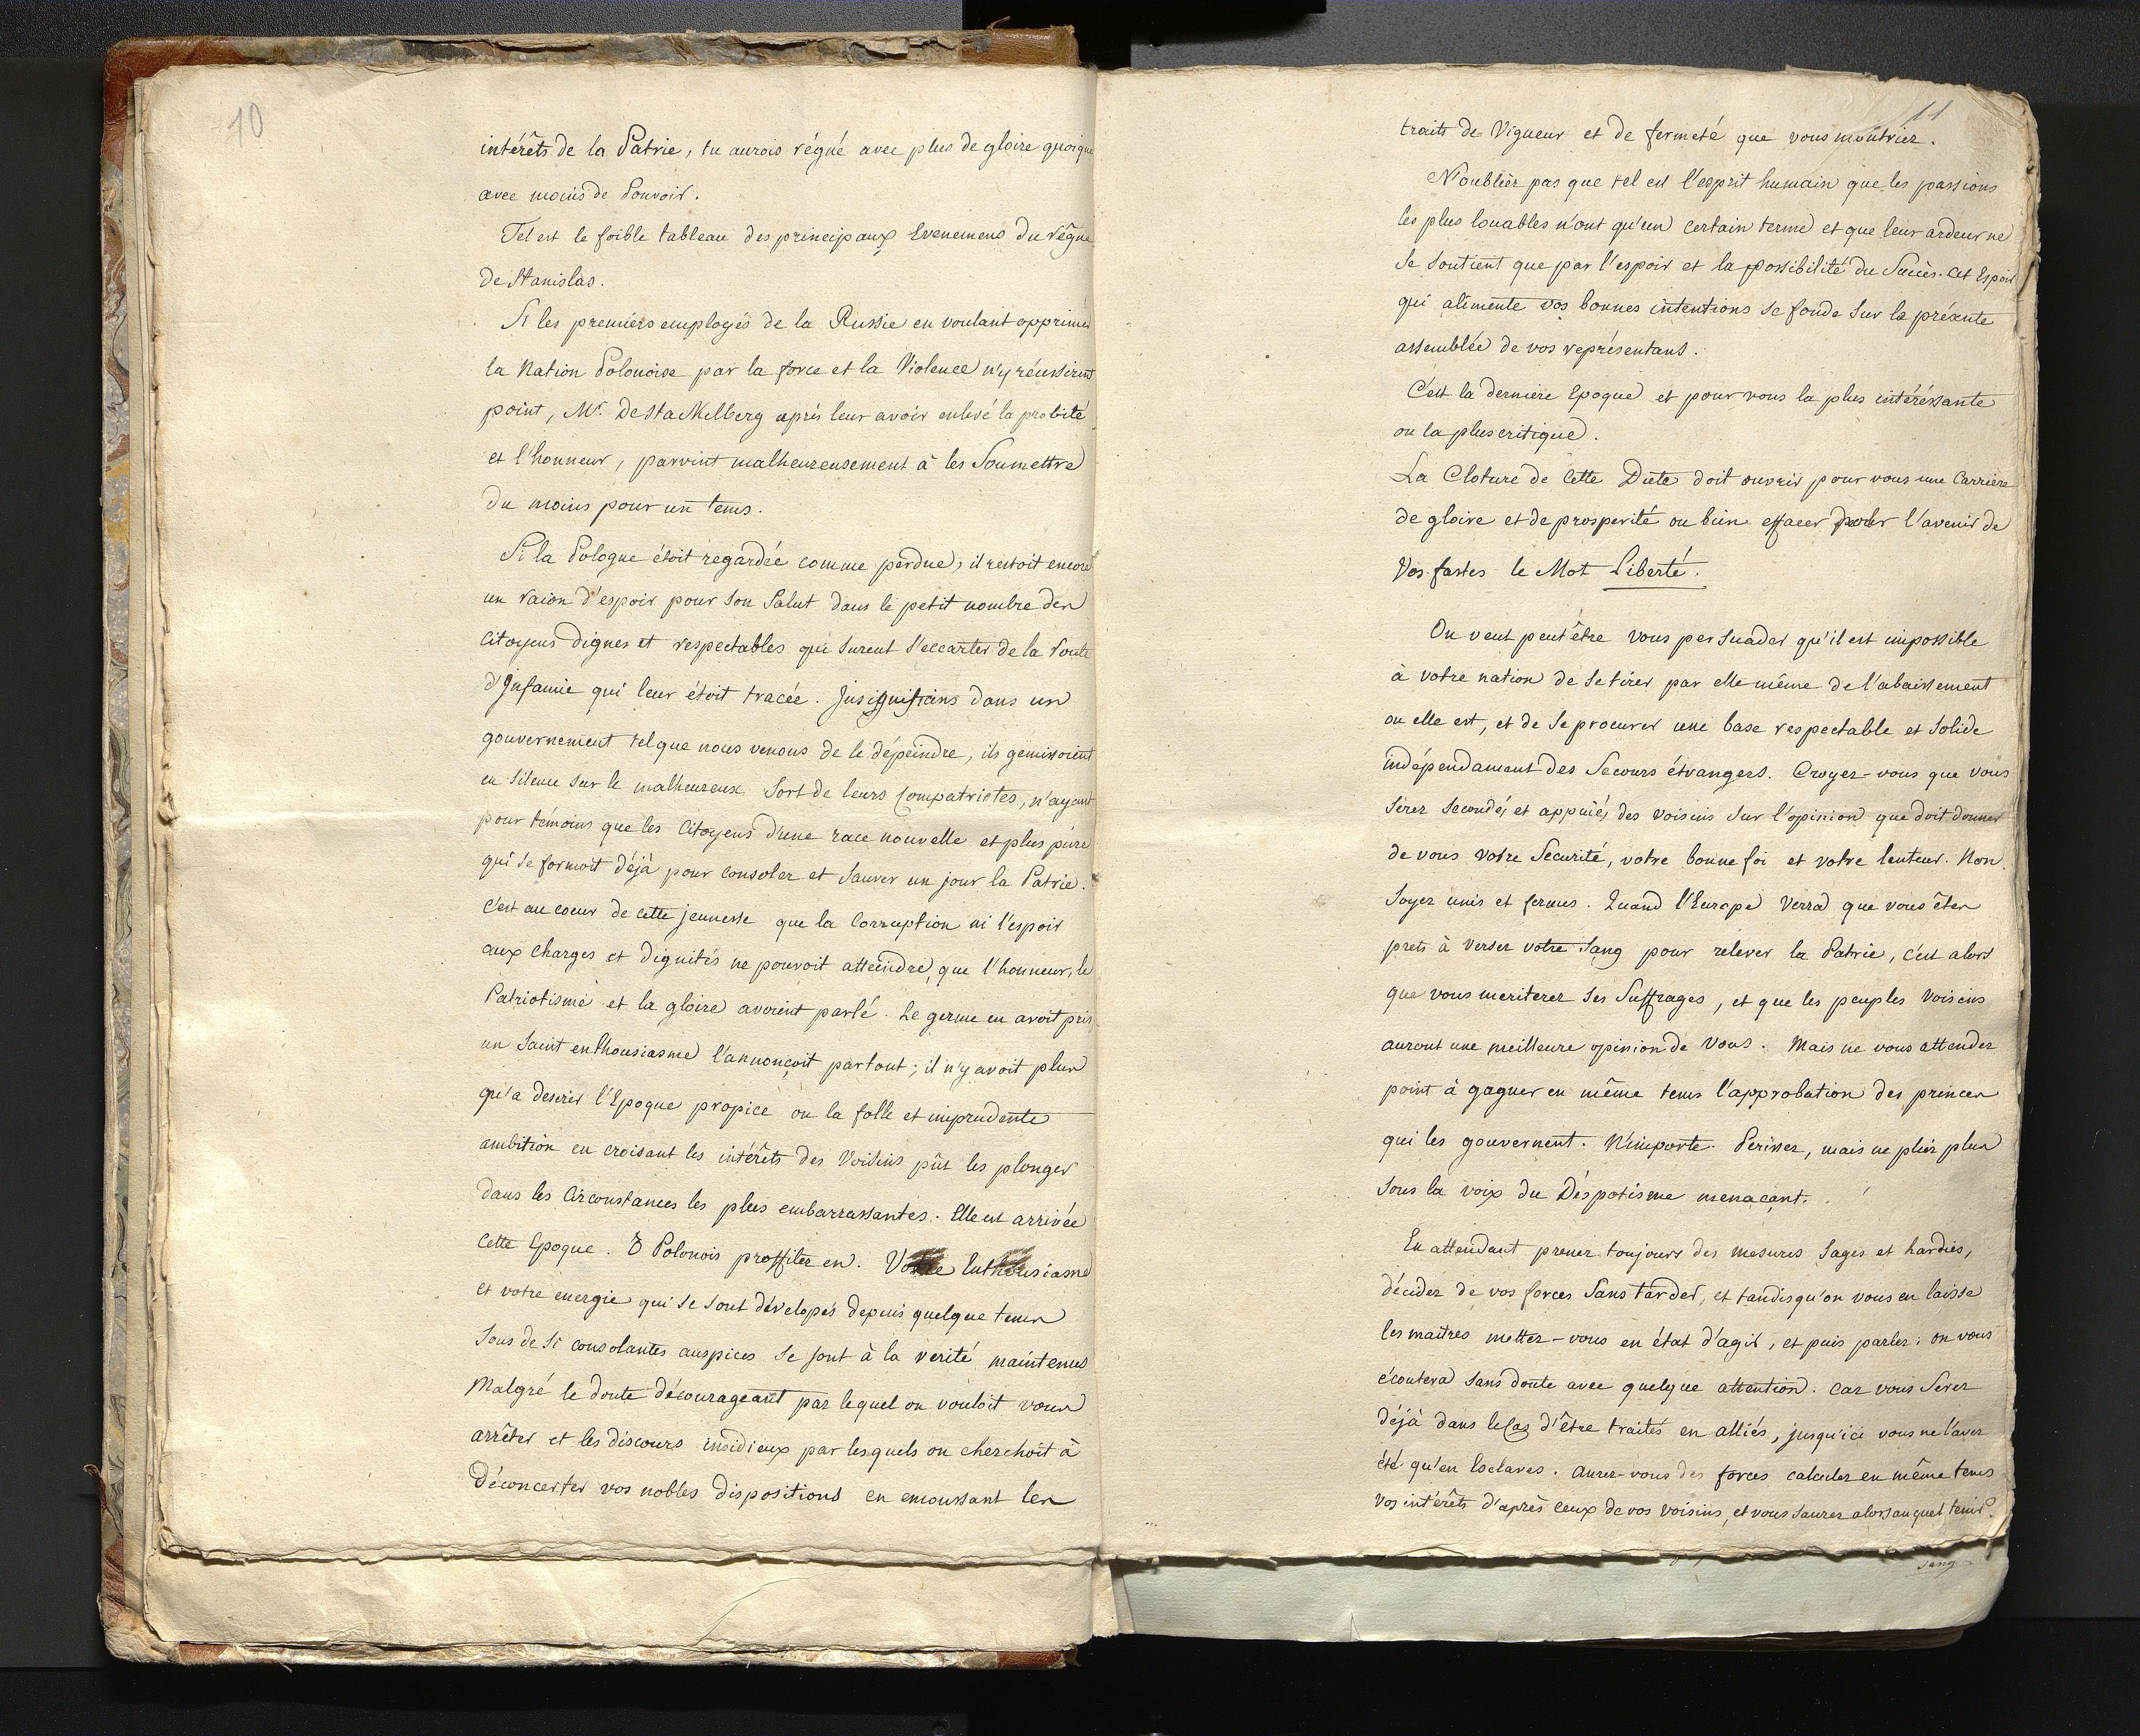 10
intérêts de la Patrie, tu aurois régné avec plus de gloire quoique
avec moins de Pouvoir.
Tel est le foible tableau des principaux Evenemens du règne
de Stanislas.
Si les premiers employés de la Russie en voulant opprimer
la Nation Polonoise par la force et la Violence n'y réussirent
point, Mr. De Stakelberg après leur avoir enlevé la probité
et l'honneur, parvint malheureusement à les Soumettre
du moins pour un tems.
Si la Pologne étoit regardée comme perdue, il restoit encore
un raion d'espoir pour son Salut dans le petit nombre des
Citoyens dignes et respectables qui surent s'eccarter de la route
d'Infamie qui leur étoit tracée. Insignifians dans un
gouvernement tel que nous venons de le dépeindre, ils gemissoient
en silence sur le malheureux Sort de leurs Compatriotes, n'ayant
pour témoins que les Citoyens d'une race nouvelle et plus pure
qui se formoit déjà pour consoler et sauver un jour la Patrie.
C'est au coeur de cette jeunesse que la Corruption ni l'espoir
aux Charges et Dignités ne pouvoit atteindre, que l'honneur, le
Patriotisme et la gloire avoient parlé. Le germe en avoit pris
un Saint enthousiasme l'annonçoit partout; il n'y avoit plus
qu'a desirer l'Epoque propice ou la folle et imprudente
ambition en croisant les intérêts des Voisins pût les plonger
dans les Circonstances les plus embarrassantes. Elle est arrivée
Cette Epoque. O Polonois proffitez en. Votre Enthousiasme
et votre energie qui se sont dévelopés depuis quelque tems
sous de si consolantes auspices se sont à la verité maintenus
Malgré le doute décourageant par lequel on vouloit vous
arrêter et les discours insidieux par lesquels on cherchoit à
Déconcerter vos nobles dispositions en emoussant les
11
traits de Vigueur et de fermeté que vous montriez.
N'oubliez pas que tel est l'esprit humain que les passions
les plus louables n'ont qu'un certain terme et que leur ardeur ne
se soutient que par l'espoir et la possibilité du Succès. Cet Espoir
qui alimente vos bonnes intentions se fonde sur la présente
assemblée de vos représentans.
C'est la derniere Epoque et pour vous la plus intéréssante
ou la plus critique.
La Cloture de Cette Diète doit ouvrir pour vous une Carrière
de gloire et de prosperité ou bien effacer pour l'avenir de
Vos fastes le Mot Liberté.
On veut peut être vous persuader qu'il est impossible
à votre nation de se tirer par elle même de l'abaissement
ou elle est, et de se procurer une base respectable et solide
indépendament des Secours étrangers. Croyez-vous que vous
serez secondés et appuiés des voisins sur l'opinion que doit donner
de vous votre Securité, votre bonne foi et votre lenteur. Non.
Soyez unis et fermes. Quand l'Europe verra que vous êtes
prets à verser votre sang pour relever la Patrie, c'est alors
que vous meriterez ses Suffrages, et que les peuples voisins
auront une meilleure opinion de Vous. Mais ne vous attendez
point à gagner en même tems l'approbation des princes
qui les gouvernent. N'importe. Perissez, mais ne pliez plus
sous la voix du Déspotisme menaçant.
En attendant prenez toujours des mesures Sages et hardies,
décidez de vos forces Sans tarder, et tandis qu'on vous en laisse
les maitres mettez-vous en état d'agir, et puis parlez; on vous
écoutera sans doute avec quelque attention. Car vous Serez
déjà dans le Cas d'être traités en alliés, jusqu'ici vous ne l'avez
été qu'en Esclaves. Aurez-vous des forces calculez en même tems
vos intérêts d'après ceux de vos voisins, et vous saurez alors auquel tenir.
sang